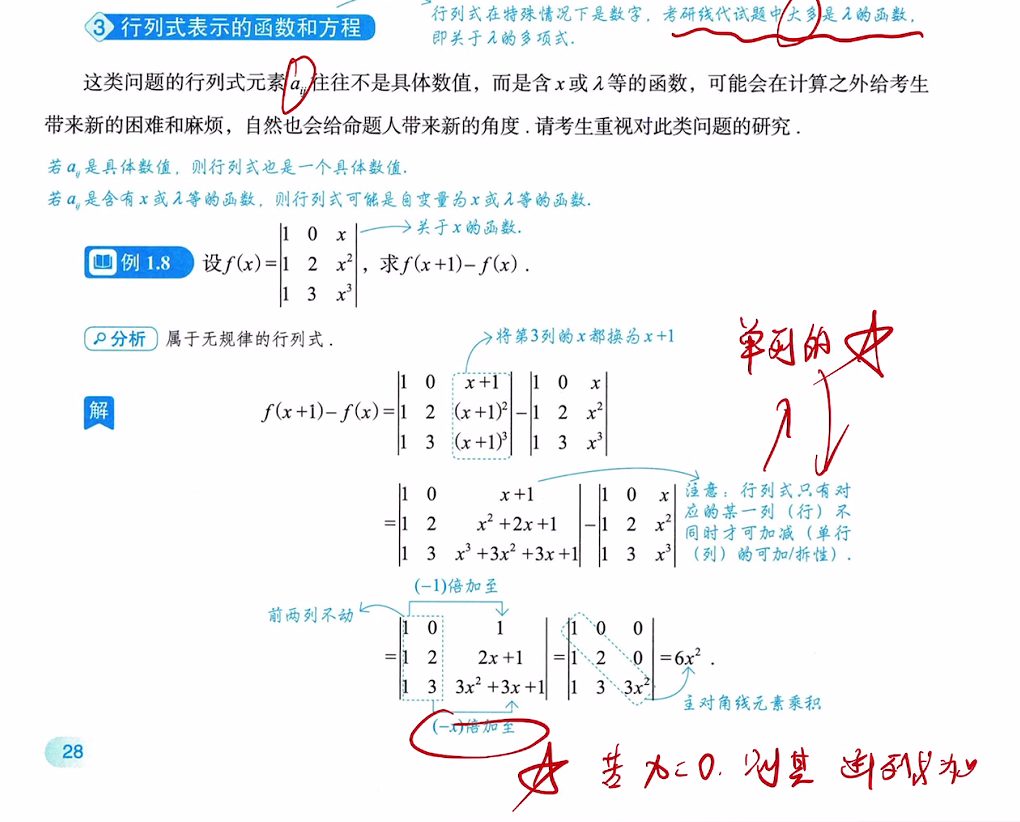 行列式在特殊情况下是数字，考研线代试题中大多是λ的函数，
即关于λ的多项式.
3 行列式表示的函数和方程
这类问题的行列式元素 aᵢⱼ 往往不是具体数值，而是含 x 或 λ 等的函数，可能会在计算之外给考生
带来新的困难和麻烦，自然也会给命题人带来新的角度 . 请考生重视对此类问题的研究 .
若 aᵢⱼ 是具体数值，则行列式也是一个具体数值.
若 aᵢⱼ 是含有 x 或 λ 等的函数，则行列式可能是自变量为 x 或 λ 等的函数.
|1 0 x| 关于 x 的函数.
例 1.8 设 f(x) = |1 2 x²| ，求 f(x+1) − f(x) .
|1 3 x³|
分析 属于无规律的行列式 .
将第3列的 x 都换为 x+1
单列的
|1 0 x+1| |1 0 x|
解 f(x+1) − f(x) = |1 2 (x+1)²| − |1 2 x²|
|1 3 (x+1)³| |1 3 x³|
|1 0 x+1| |1 0 x|
= |1 2 x²+2x+1| − |1 2 x²|
|1 3 x³+3x²+3x+1| |1 3 x³|
注意：行列式只有对
应的某一列（行）不
同时才可加减（单行
（列）的可加/拆性）.
(−1)倍加至
前两列不动
|1 0 1| |1 0 0|
= |1 2 2x+1| = |1 2 0| = 6x² .
|1 3 3x²+3x+1| |1 3 3x²|
主对角线元素乘积
(−x)倍加至
28
若 x=0. 则其